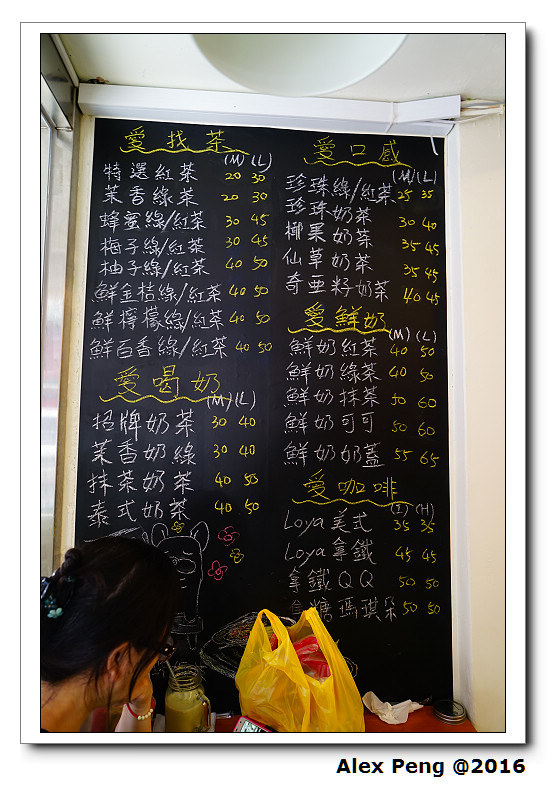 愛找茶
(M) (L)
特選紅茶 20 30
茉香綠茶 20 30
蜂蜜綠/紅茶 30 45
梅子綠/紅茶 30 45
柚子綠/紅茶 40 50
鮮金桔綠/紅茶 40 50
鮮檸檬綠/紅茶 40 50
鮮百香綠/紅茶 40 50
愛喝奶
(M) (L)
招牌奶茶 30 40
茉香奶綠 30 40
抹茶奶茶 40 50
泰式奶茶 40 50
愛口感
(M) (L)
珍珠綠/紅茶 25 35
珍珠奶茶 30 40
椰果奶茶 35 45
仙草奶茶 35 45
奇亞籽奶茶 40 45
愛鮮奶
(M) (L)
鮮奶紅茶 40 50
鮮奶綠茶 40 50
鮮奶抹茶 50 60
鮮奶可可 50 60
鮮奶奶蓋 55 65
愛咖啡
(I) (H)
Loya美式 35 35
Loya拿鐵 45 45
拿鐵QQ 50 50
糖瑪琪朵 50 50
Alex Peng @2016